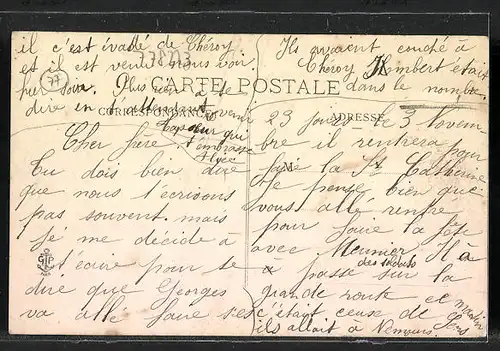 il c'est évadé de Chéroy
et il est venu nous voir
sa. Plus rien a te
dire en attendant
Ta sœur qui
t'embrasse
Alice
Ils avaient couché à
Chéroy Humbert était
dans le nombre.
77
37873
CARTE POSTALE
CORRESPONDANCE
ADRESSE
M
Cher frère
Tu dois bien dire
que nous t'écrivons
pas souvent mais
je me décide à
t'écrire pour te
dire que Georges
va allé faire ses
23 jours le 3 novem-
bre il rentrera pour
faire la Ste Catherine
Je pense bien que
vous allé rentré
pour faire la fête
avec Meunier. Il a
passé sur la
grande route et
c'étant ceuse de Sens
ils allait à Nemours.